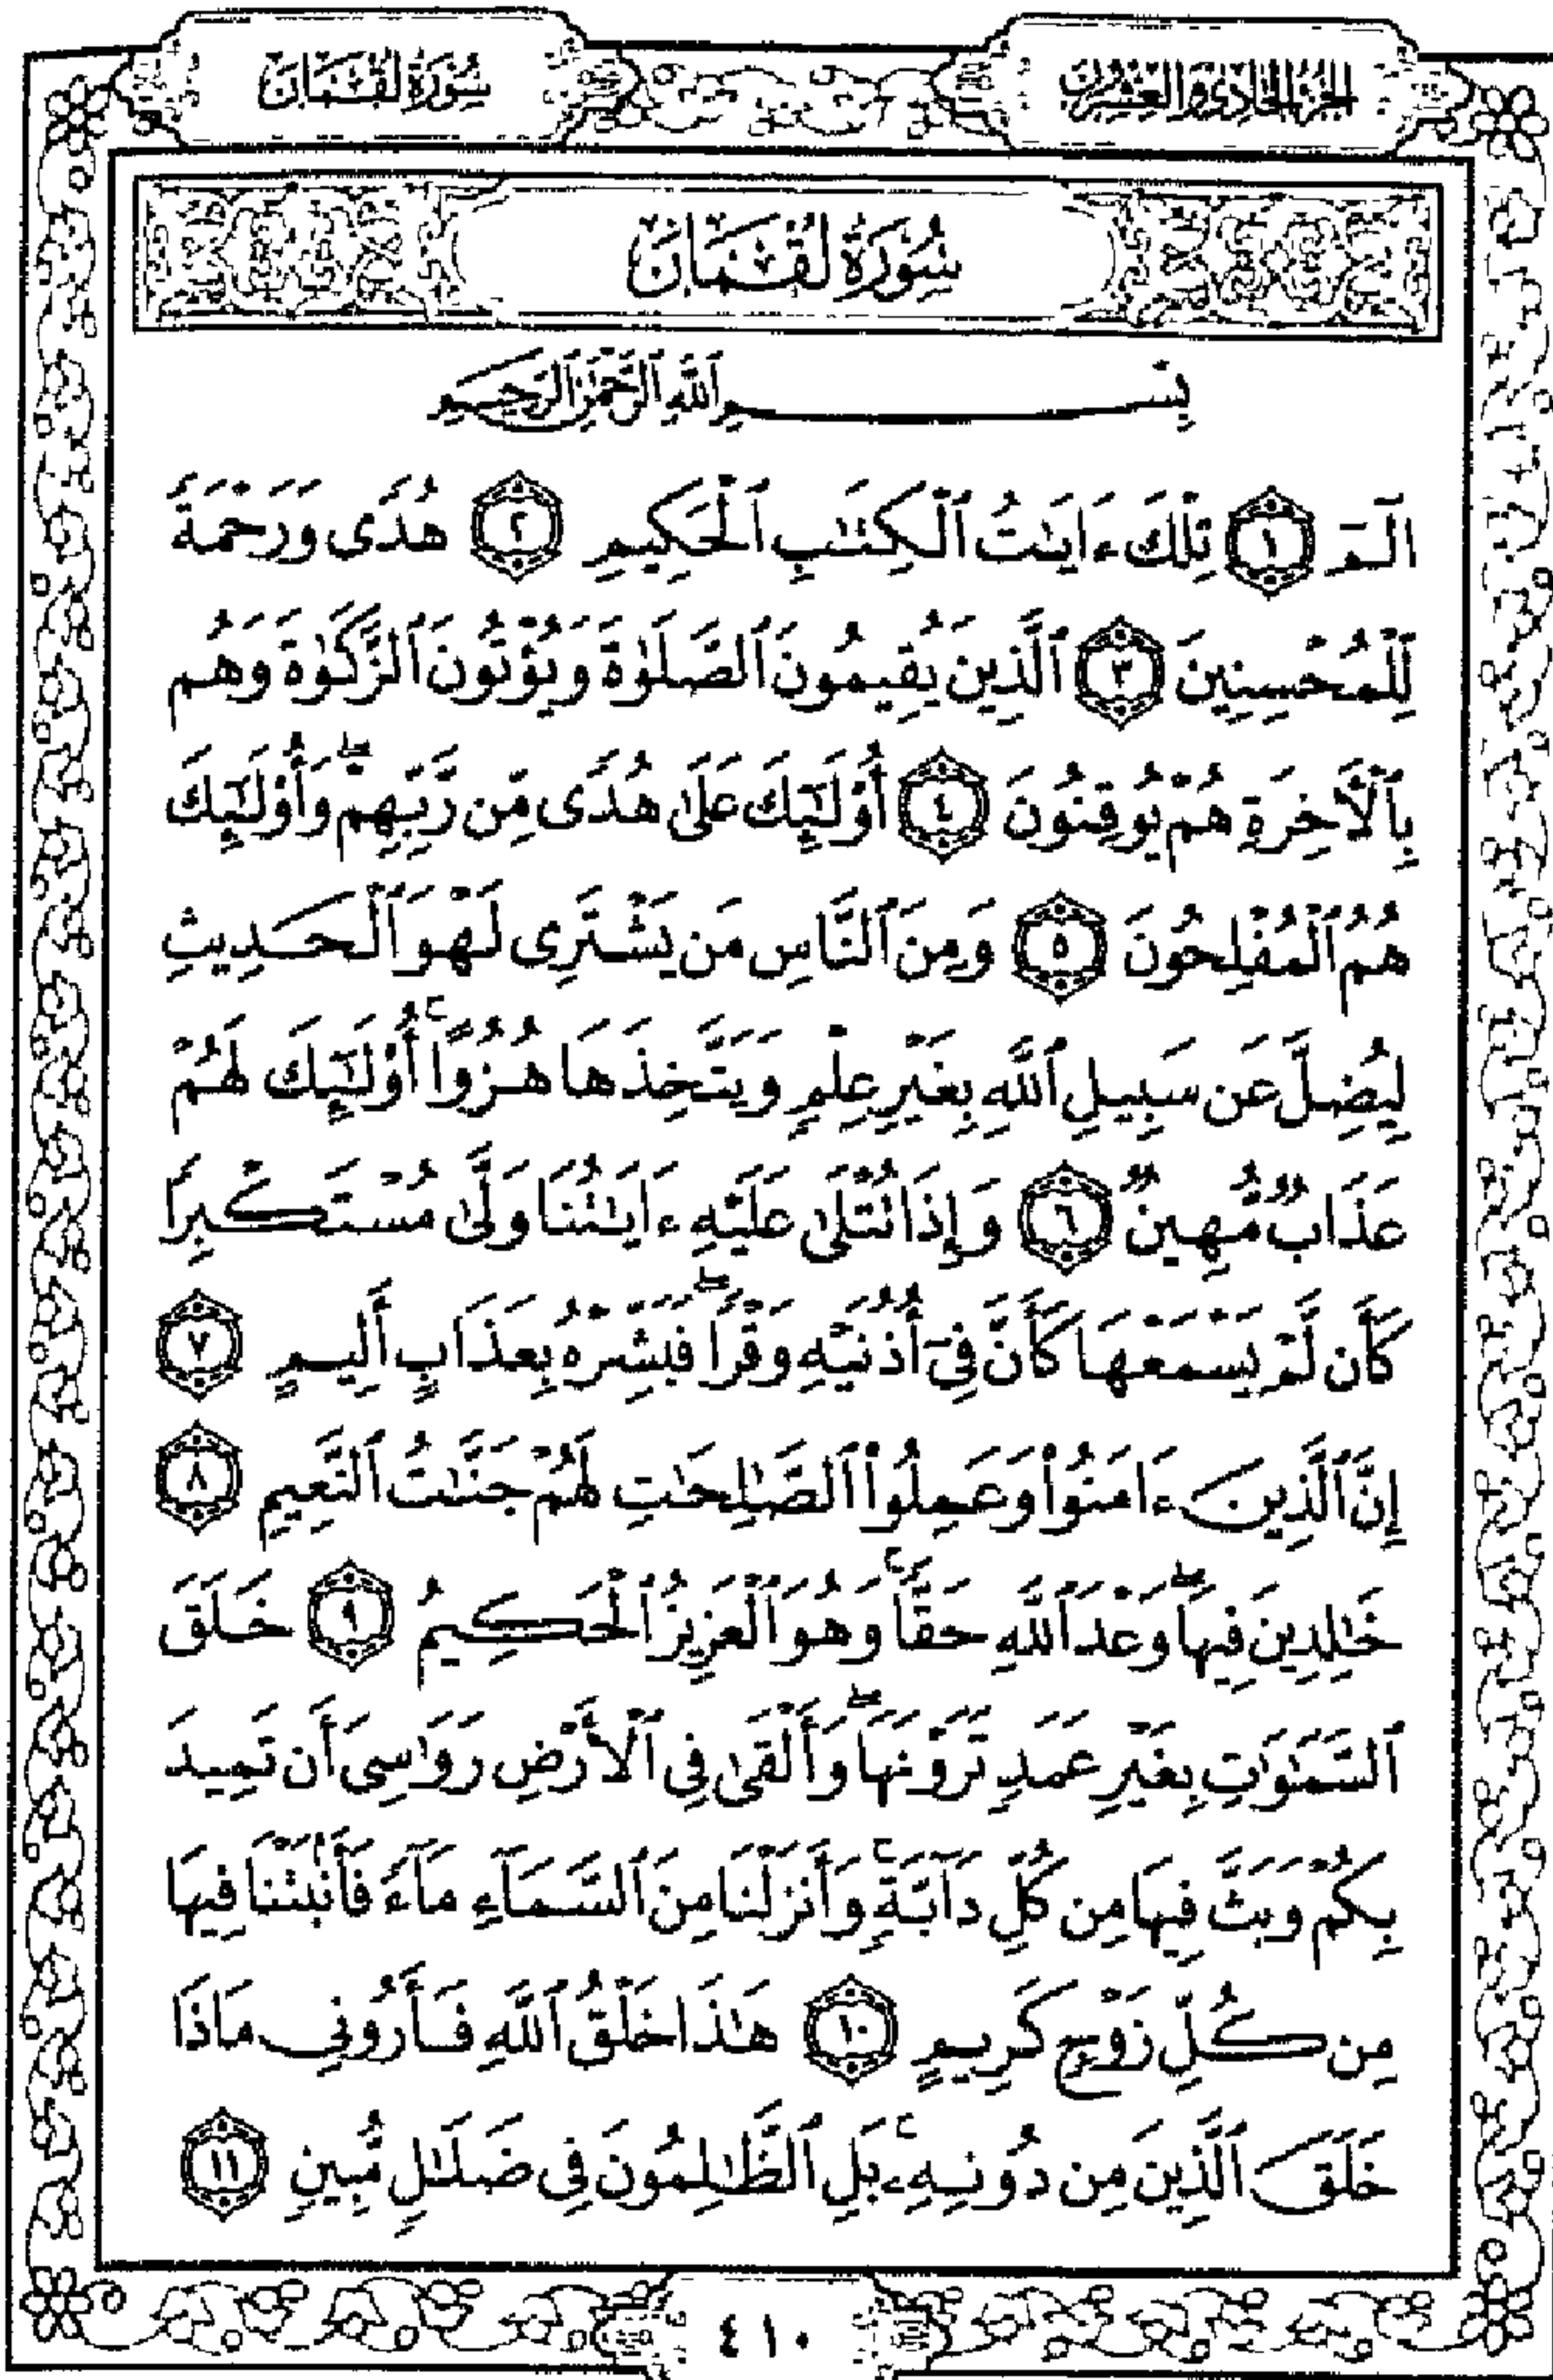 الجزء الحادي والعشرون
سورة لقمان
سُورَةُ لُقْمَانَ
بِسْمِ ٱللَّهِ ٱلرَّحْمَٰنِ ٱلرَّحِيمِ
الٓمٓ ١ تِلْكَ ءَايَٰتُ ٱلْكِتَٰبِ ٱلْحَكِيمِ ٢ هُدًى وَرَحْمَةً
لِّلْمُحْسِنِينَ ٣ ٱلَّذِينَ يُقِيمُونَ ٱلصَّلَوٰةَ وَيُؤْتُونَ ٱلزَّكَوٰةَ وَهُم
بِٱلْأَخِرَةِ هُمْ يُوقِنُونَ ٤ أُوْلَٰٓئِكَ عَلَىٰ هُدًى مِّن رَّبِّهِمْ ۖ وَأُوْلَٰٓئِكَ
هُمُ ٱلْمُفْلِحُونَ ٥ وَمِنَ ٱلنَّاسِ مَن يَشْتَرِى لَهْوَ ٱلْحَدِيثِ
لِيُضِلَّ عَن سَبِيلِ ٱللَّهِ بِغَيْرِ عِلْمٍ وَيَتَّخِذَهَا هُزُوًا ۚ أُوْلَٰٓئِكَ لَهُمْ
عَذَابٌ مُّهِينٌ ٦ وَإِذَا تُتْلَىٰ عَلَيْهِ ءَايَٰتُنَا وَلَّىٰ مُسْتَكْبِرًا
كَأَن لَّمْ يَسْمَعْهَا كَأَنَّ فِىٓ أُذُنَيْهِ وَقْرًا ۖ فَبَشِّرْهُ بِعَذَابٍ أَلِيمٍ ٧
إِنَّ ٱلَّذِينَ ءَامَنُوا۟ وَعَمِلُوا۟ ٱلصَّٰلِحَٰتِ لَهُمْ جَنَّٰتُ ٱلنَّعِيمِ ٨
خَٰلِدِينَ فِيهَا ۖ وَعْدَ ٱللَّهِ حَقًّا ۚ وَهُوَ ٱلْعَزِيزُ ٱلْحَكِيمُ ٩ خَلَقَ
ٱلسَّمَٰوَٰتِ بِغَيْرِ عَمَدٍ تَرَوْنَهَا ۖ وَأَلْقَىٰ فِى ٱلْأَرْضِ رَوَٰسِىَ أَن تَمِيدَ
بِكُمْ وَبَثَّ فِيهَا مِن كُلِّ دَآبَّةٍ ۚ وَأَنزَلْنَا مِنَ ٱلسَّمَآءِ مَآءً فَأَنۢبَتْنَا فِيهَا
مِن كُلِّ زَوْجٍ كَرِيمٍ ١٠ هَٰذَا خَلْقُ ٱللَّهِ فَأَرُونِى مَاذَا
خَلَقَ ٱلَّذِينَ مِن دُونِهِۦ ۚ بَلِ ٱلظَّٰلِمُونَ فِى ضَلَٰلٍ مُّبِينٍ ١١
٤١٠